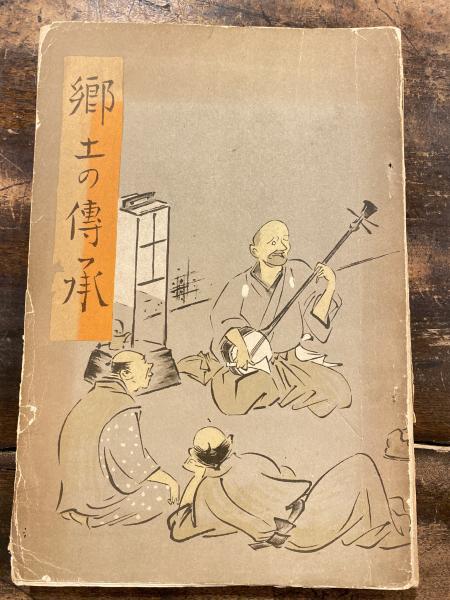 郷土の傳承